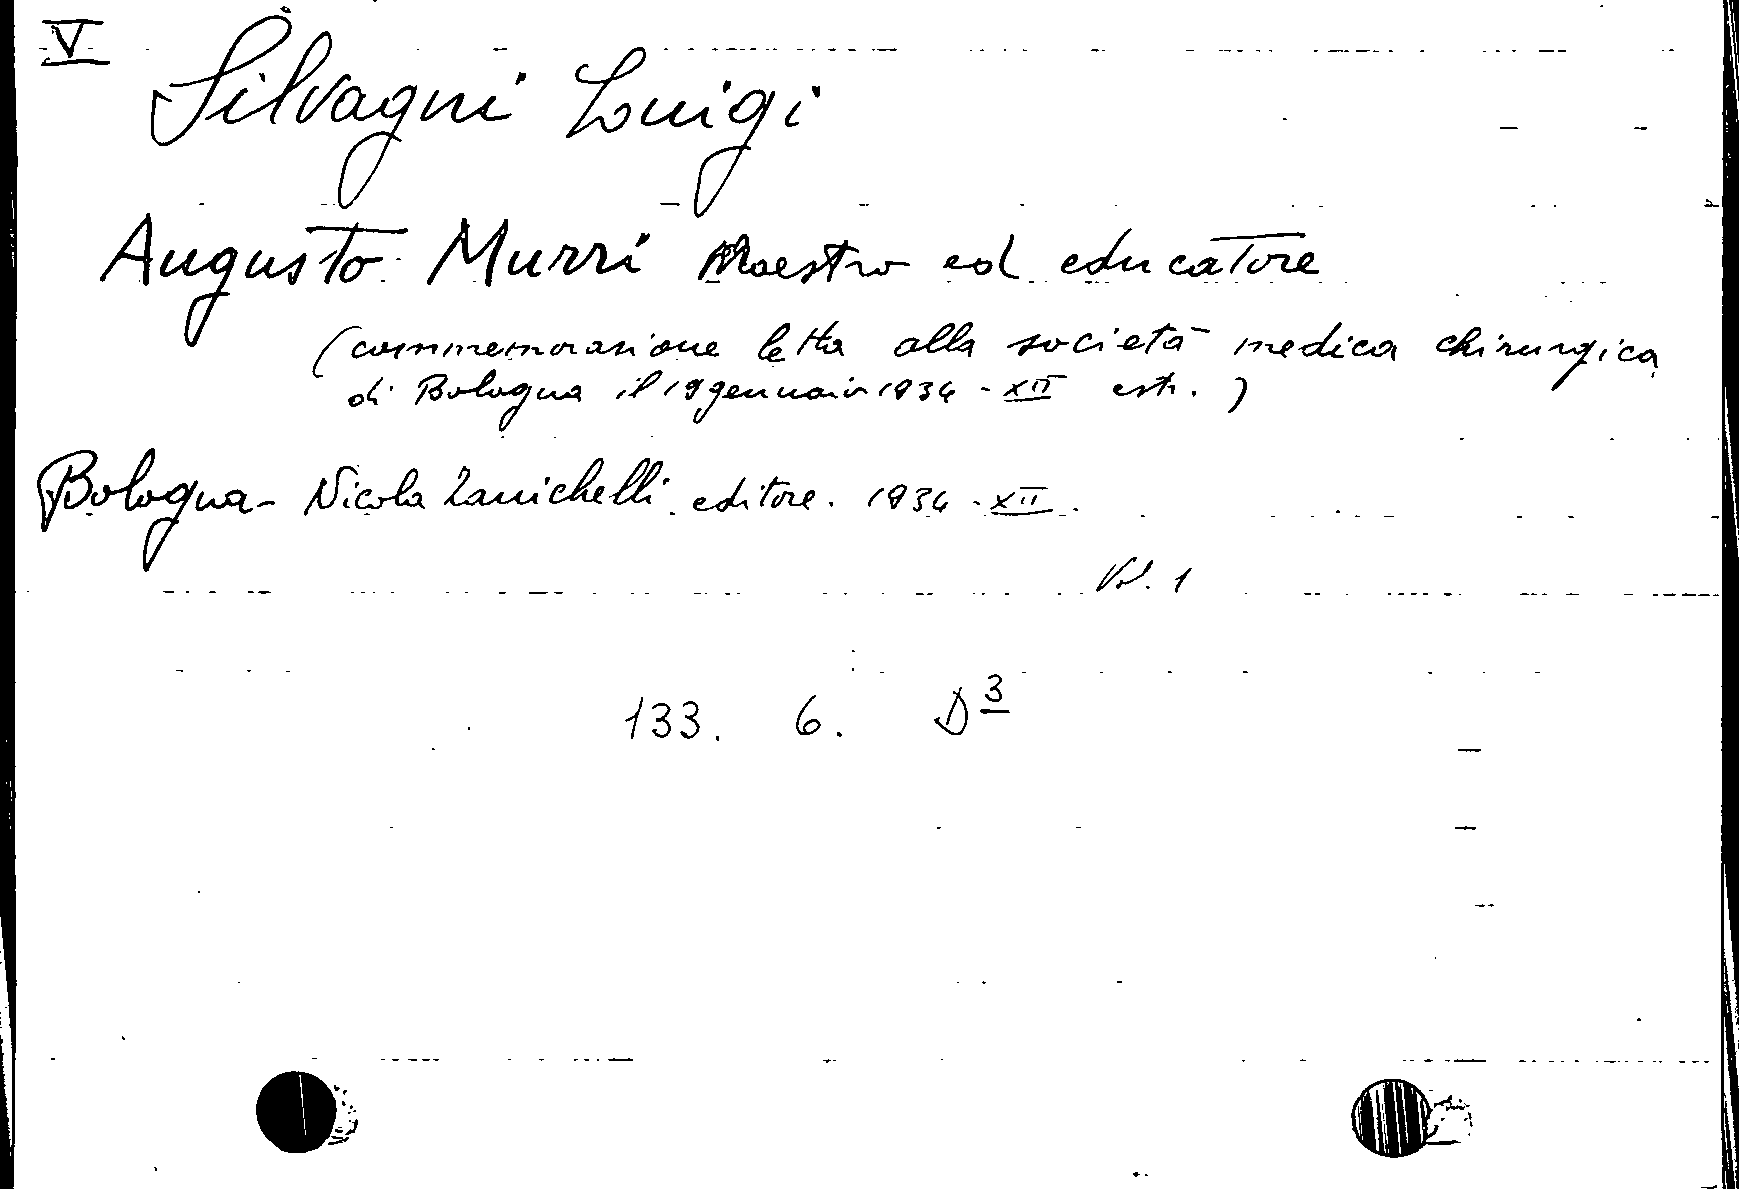 V
Silvagni Luigi
Augusto Murri Maestro ed educatore
(commemorazione letta alla società medica chirurgica
di Bologna il 19 gennaio 1934 - XII estr. )
Bologna - Nicola Zanichelli editore. 1934 - XII.
Vol. 1
133. 6. D 3